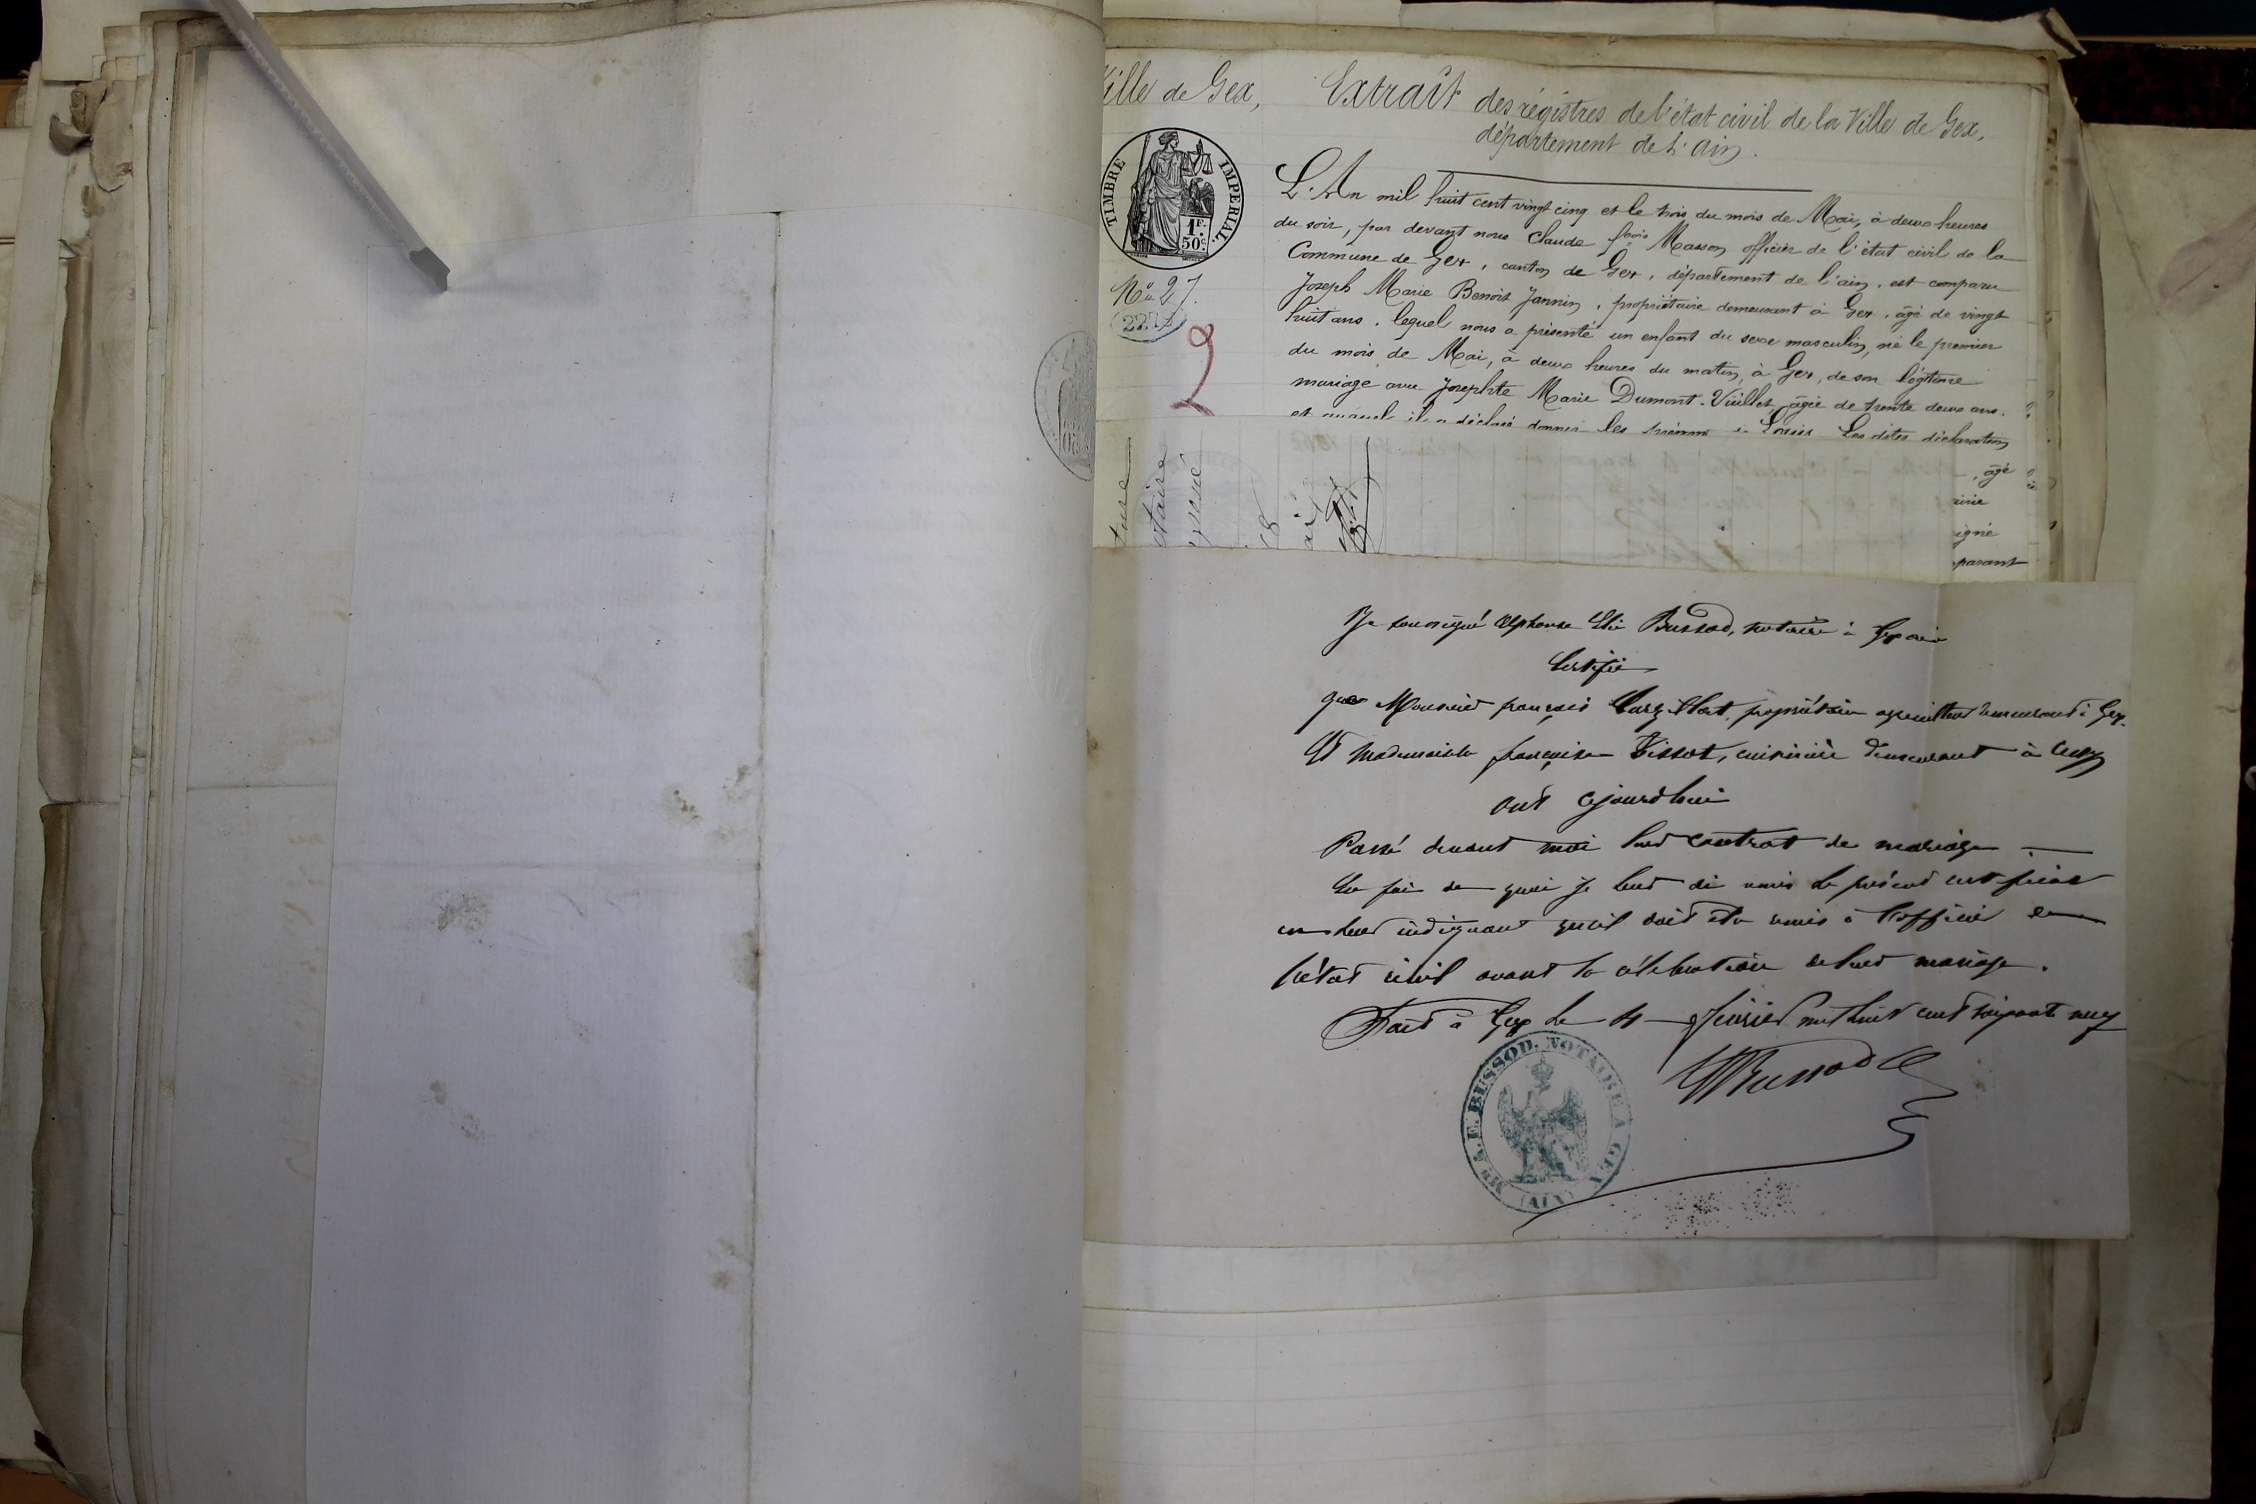 Ville de Gex,
Extrait des régistres de l'état civil de la Ville de Gex,
département de l'ain.
TIMBRE IMPERIAL.
1F.
50c.
No 27.
2
L'An mil huit cent vingt cinq et le trois du mois de Mai, à deux heures
du soir, par devant nous Claude fçois Masson officier de l'état civil de la
Commune de Gex, canton de Gex, département de l'ain, est comparu
Joseph Marie Benoit Jannin, propriétaire demeurant à Gex, âgé de vingt
huit ans, lequel nous a présenté un enfant du sexe masculin, né le premier
du mois de Mai, à deux heures du matin, à Gex, de son légitime
mariage avec Josephte Marie Dumont-Vuillet, âgée de trente deux ans.
et auquel il a déclaré donner les prénoms de Les dites déclaration
âgé
igné
parant
Je soussigné Alphonse Elie Bussod, notaire à Gex ain
Certifie
que Monsieur françois propriétaire agriculteur demeurant à Gex.
Et Mademoiselle françoise Tissot, cuisinière demeurant à
ont cejourd'hui
Passé devant moi leur contrat de mariage
En foi de quoi je leur ai remis le présent certificat
en leur indiquant qu'il doit être remis à l'officier de
l'état civil avant la célébration de leur mariage.
Fait à Gex le 4 février mil huit cent soixante neuf
Bussod
Me A. E. BUSSOD, NOTAIRE A GEX
(AIN)